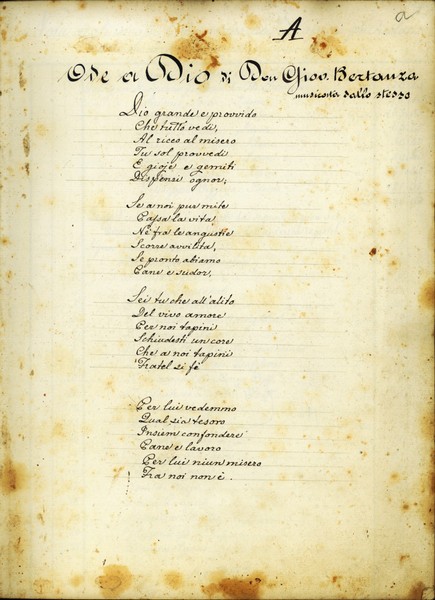 a
A
Ode a Dio di Don Giov. Bertanza
musicata dallo stesso
Dio grande e provvido
Che tutto vedi,
Al ricco al misero
Tu sol provvedi
E gioje e gemiti
Dispensi ognor;
Se a noi pur mite
Passa la vita,
Nè fra le angustie
Scorre avvilita,
Se pronto abiamo
Pane e sudor,
Sei tu che all'alito
Del vivo amore
Per noi tapini
Schiudesti un core
Che a noi tapini
Fratel si fè
Per lui vedemmo
Qual sia tesoro
Insiem confondere
Pane e lavoro
Per lui niun misero
Fra noi non è.